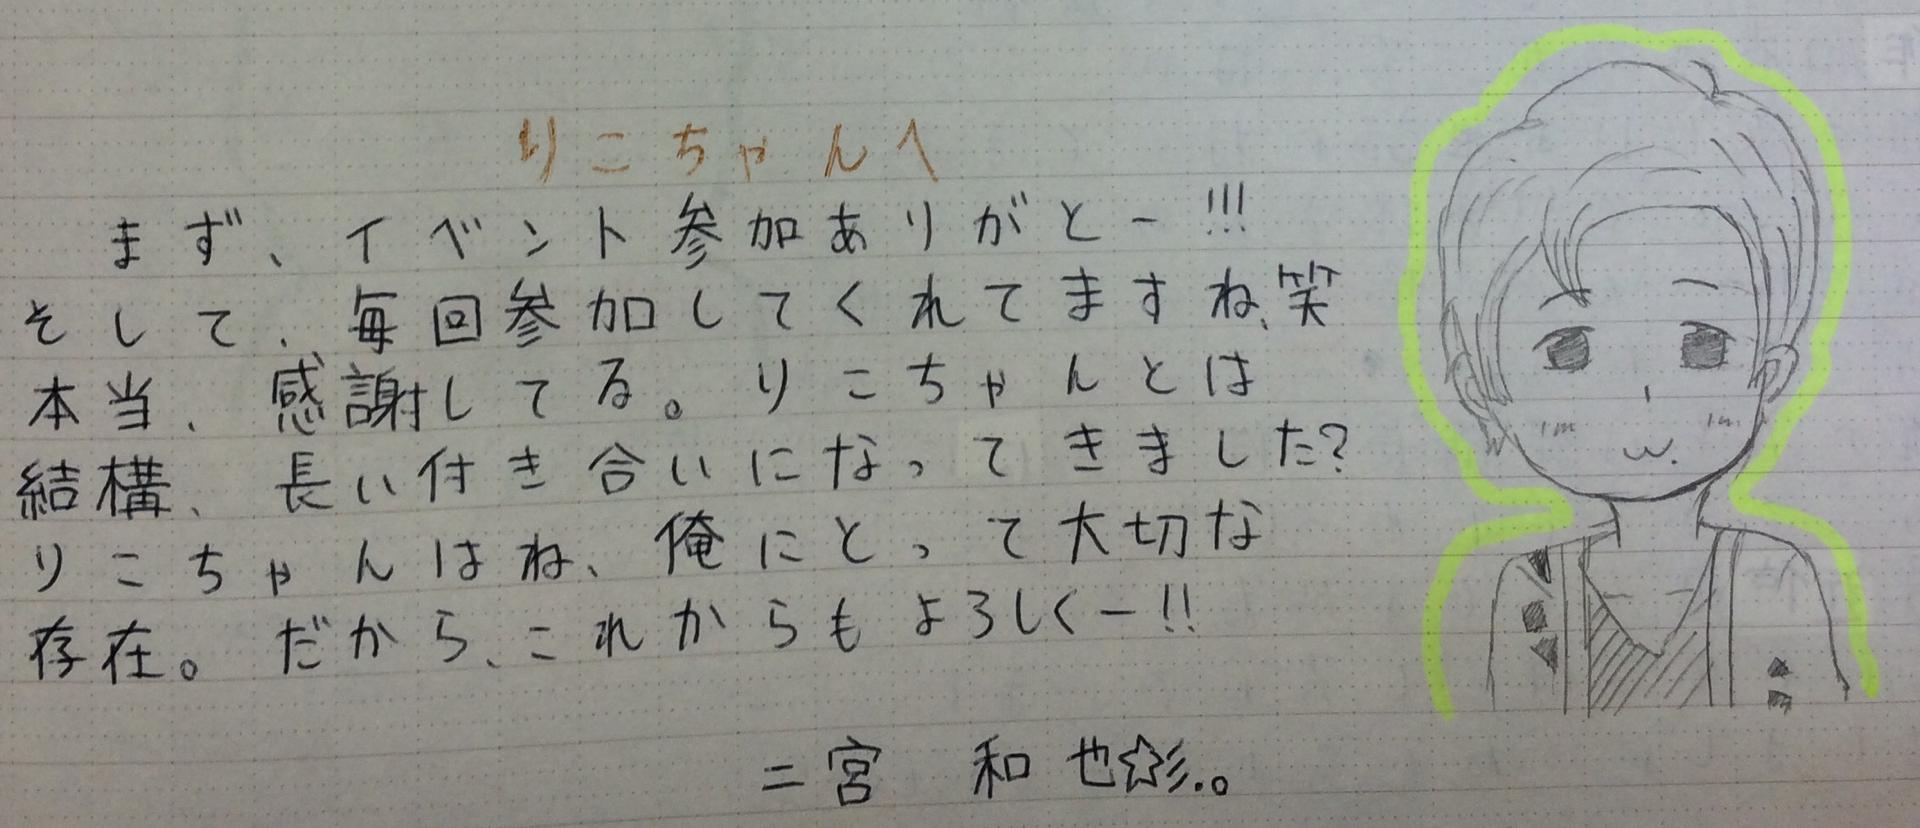 りこちゃんへ
まず、イベント参加ありがとー!!!
そして、毎回参加してくれてますね、笑
本当、感謝してる。りこちゃんとは
結構、長い付き合いになってきました?
りこちゃんはね、俺にとって大切な
存在。だから、これからもよろしくー!!
二宮 和也☆彡.。